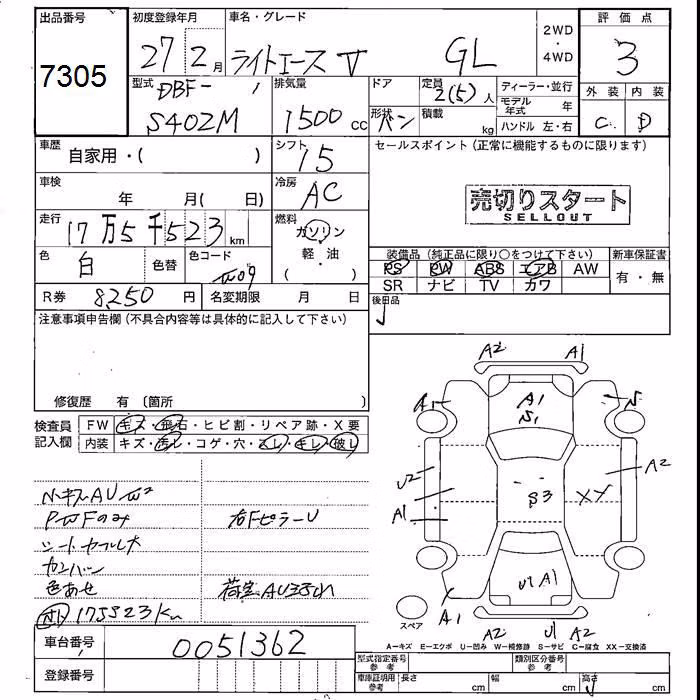 出品番号
7305
初度登録年月
27 2月
車名・グレード
ライトエース V GL
2WD
・
4WD
評価点
3
型式
DBF-
S402M
排気量
1500 cc
ドア
定員
2(5)人
ディーラー・並行
モデル年式 年
ハンドル 左・右
形状
バン
積載
kg
外装
内装
C
D
車歴
自家用・( )
シフト
I5
セールスポイント (正常に機能するものに限ります)
売切りスタート
SELLOUT
車検
年 月( 日)
冷房
AC
走行
17万5千523km
燃料
ガソリン
・
軽・油
( )
色
白
色替
色コード
W09
装備品 (純正品に限り〇をつけて下さい)
PS PW ABS エアB AW
SR ナビ TV カワ
新車保証書
有・無
R券
8250円
名変期限 月 日
後日品
注意事項申告欄 (不具合内容等は具体的に記入して下さい)
修復歴 有 〔箇所 〕
検査員
記入欄
FW
キズ・飛石・ヒビ割・リペア跡・X要
内装
キズ・汚レ・コゲ・穴・スレ・キレ・破レ
小キズAU
PWFのみ
右FピラーU
シートヤブレ大
カンバン
色あせ
荷室AU
175523Km
A2
A1
A1
A1
S1
S
U2
A1
S3
XX
A2
U1 A1
A1
A2
U1
A2
スペア
A−キズ E−エクボ U−凹み W−補修跡 S−サビ C−腐食 XX−交換済
車台番号
0051362
登録番号
型式指定番号
参考
類別区分番号
参考
車庫証明用
参考
長さ cm
幅 cm
高さ cm